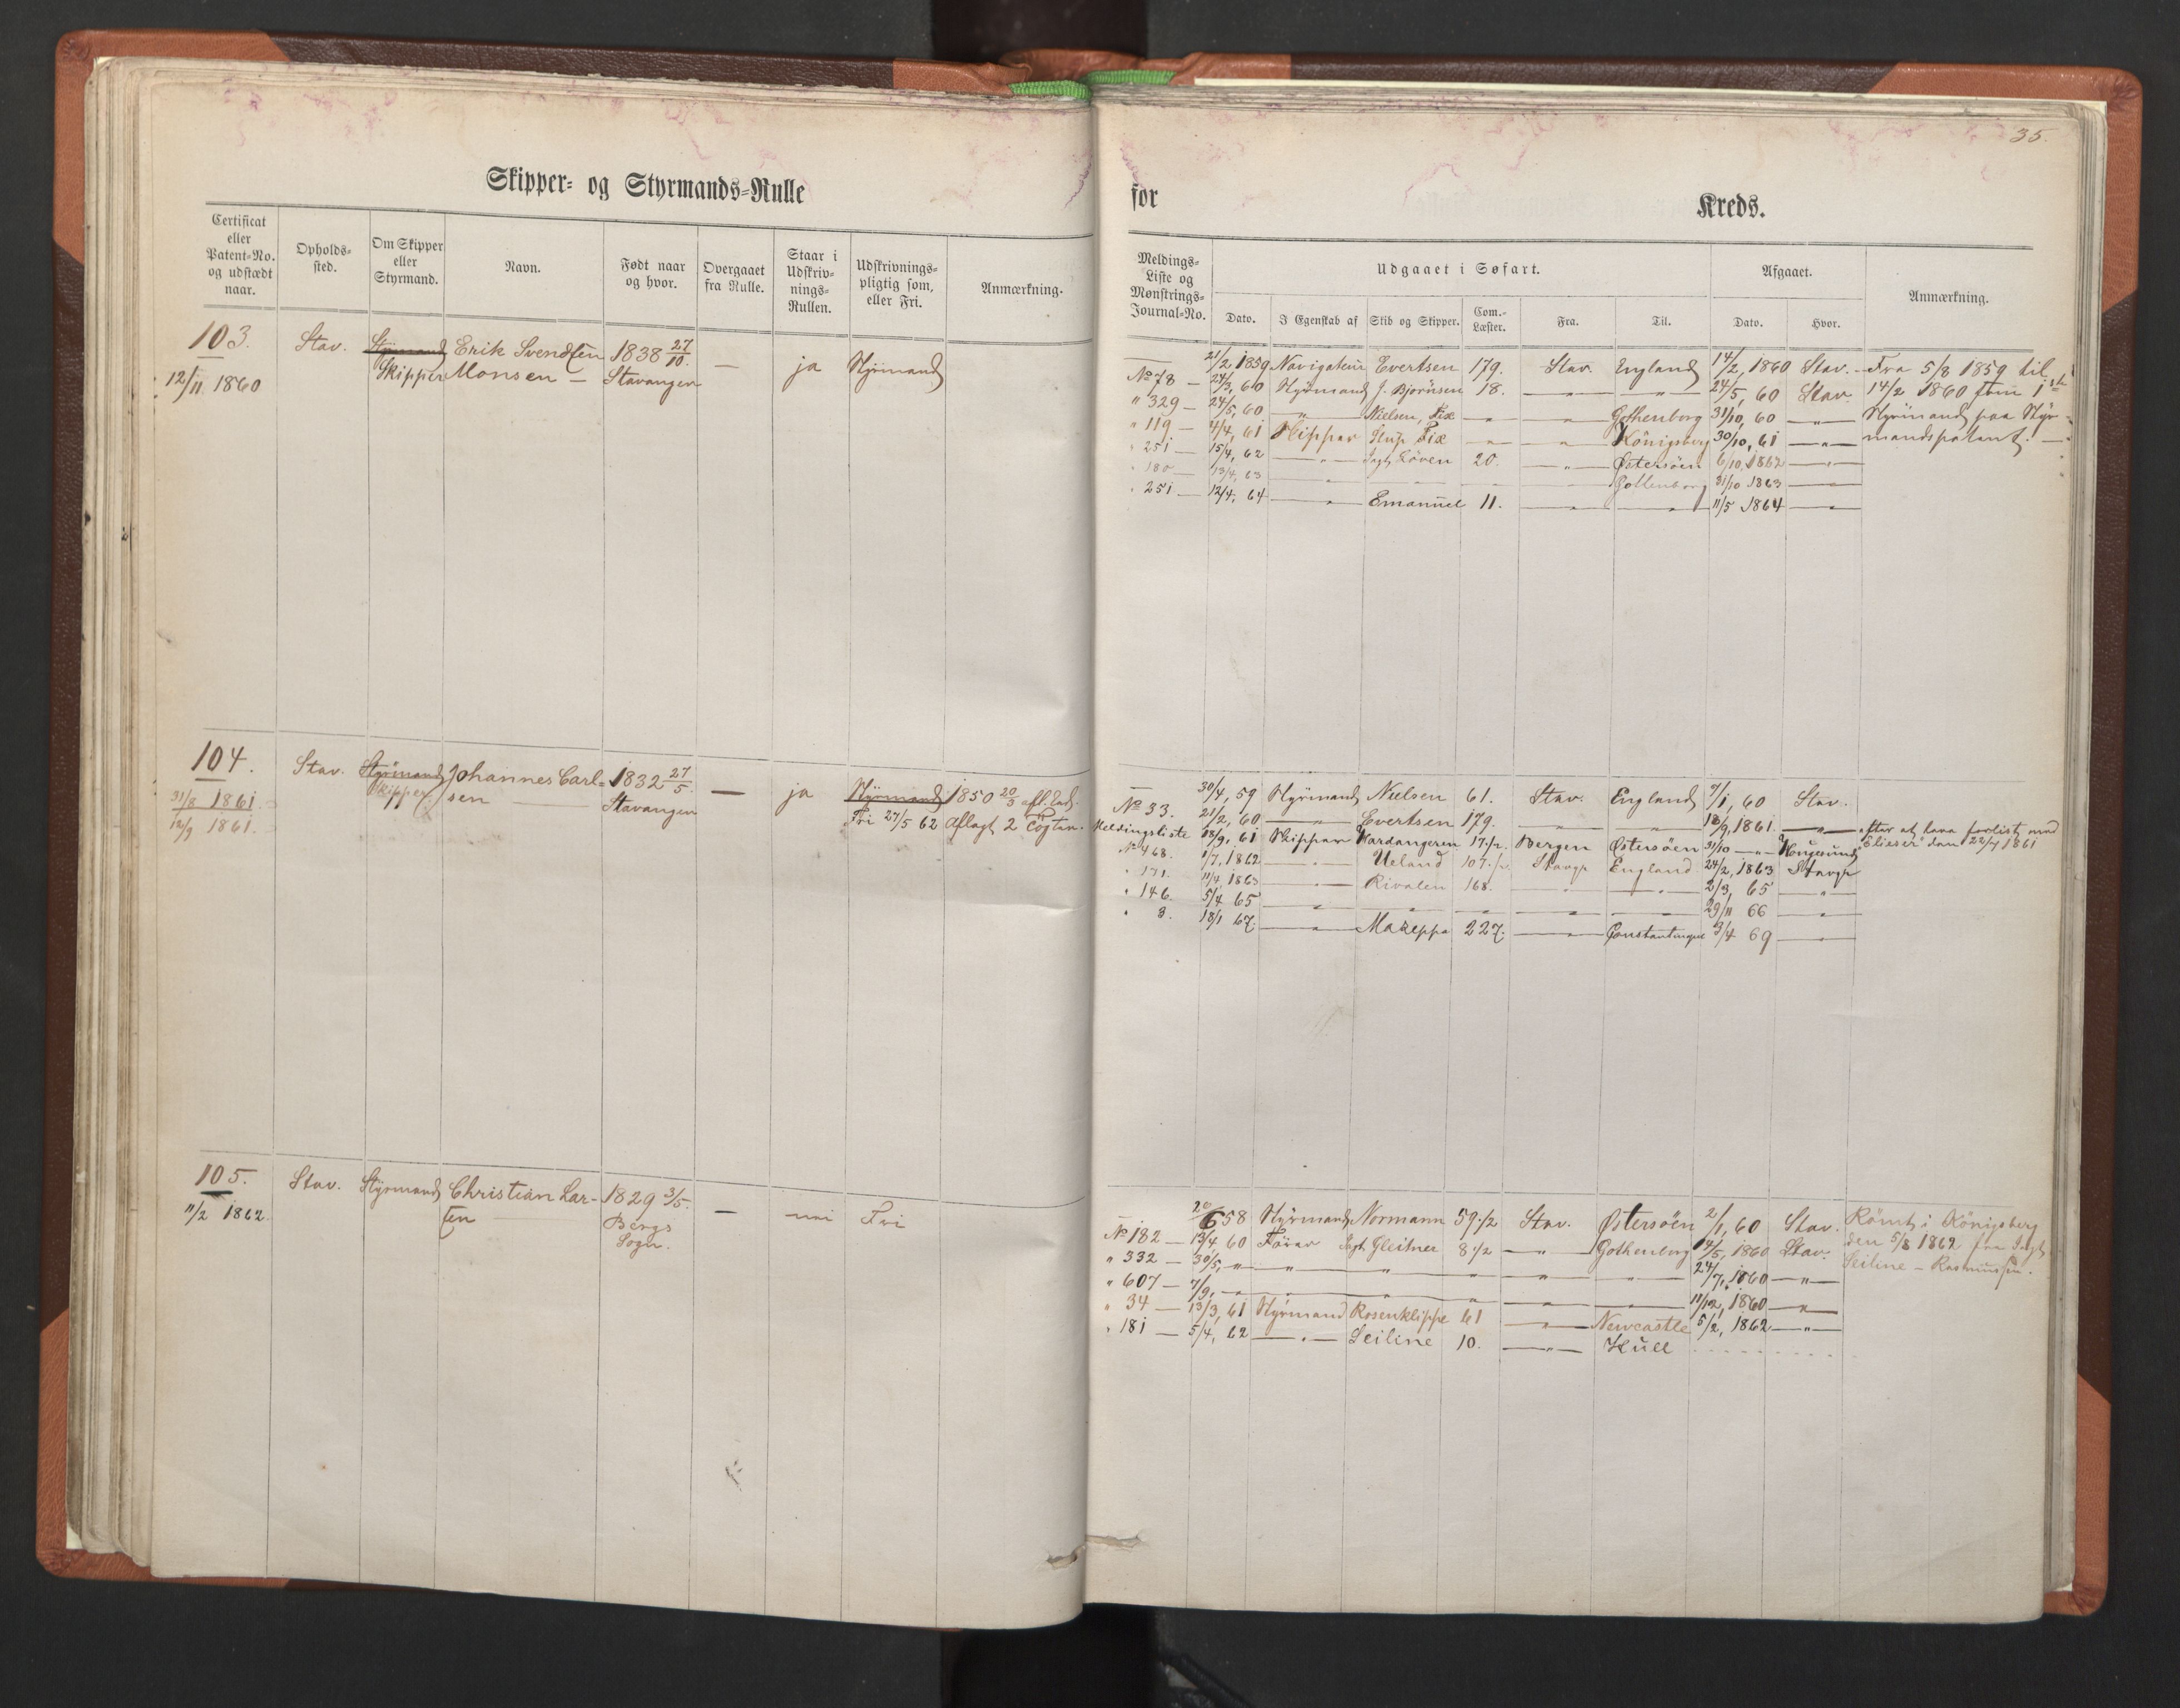 35.
Skipper- og Styrmands-Rulle
for Kreds.
Certificat eller Patent-No. og udstædt naar.
Opholds-sted.
Om Skipper eller Styrmand.
Navn.
Født naar og hvor.
Overgaaet fra Rulle.
Staar i Udskriv-nings-Rullen.
Udskrivnings-pligtig som, eller Fri.
Anmærkning.
Meldings-Liste og Mønstrings-Journal-No.
Udgaaet i Søfart.
Dato.
I Egenskab af
Skib og Skipper.
Com.-Læster.
Fra.
Til.
Afgaaet.
Dato.
Hvor.
Anmærkning.
103. Stav. Styrmand Erik Svendsen 1838 27/10. — ja Styrmand
12/11 1860 Skipper Monsen — Stavanger
— 21/2 1859 Navigateur Evertsen 179. Stav. England 14/2, 1860 Stav. Fra 5/8 1859 til
No 78 — 24/3, 60 Styrmand J. Bjørnsen 18. — " — — " — 24/5, 60 Stav. 14/2 1860 som 1ste
" 329 — 24/5, 60 — " — Nielsen, Fix — " — " Gothenborg 31/10, 60 — " — Styrmand paa Styr-
" 119 — 4/4, 61 Skipper Slup Fix — " — " Königsberg 30/10, 61 — " — mandspatent. —
" 251 — 15/4, 62 — " — Jagt Löven 20. — " — Østersöen 6/10, 1862 — " —
" 180 — 13/4, 63 — " — — " — Gottenborg 31/10 1863 — " —
" 251 — 12/4, 64 — " — Emanuel 11. — " — — " — 11/5 1864 — " —
104. Stav. Styrmand Johannes Carl- 1832 27/5. — ja Styrmand 1850 20/5
31/8 1861. Skipper. sen — Stavanger Fri 27/5 62 aflagt 2 Togter.
12/9 1861.
— 30/4, 59 Styrmand Nielsen 61. Stav. England 7/1, 60 Stav.
No 33. 21/2, 60 — " — Evertsen 179. — " — — " — 18/9, 1861. — " — efter at have forlist med
Meldingsliste 18/9, 61 Skipper Hardangeren 17 1/2. Bergen Østersöen 31/10 — " — Haugesund "Elieser" den 22/7 1861
No 468. 1/7, 1862 — " — Ueland 107 1/2. Stavgr England 24/2, 1863 Stavgr
" 171. 11/4 1863 — " — Rivalen 168. — " — — " — 2/3, 65 "
" 146. 5/4 65 — " — — " — — " — — " — 29/11 66 — " —
" 8. 18/1 67. — " — Mazeppa 227. — " — Constantinopel 3/4 69 — " —
105. Stav. Styrmand Christian Lar- 1829 3/5. — nei Fri
11/2 1862. sen — Bergs
Sogn.
20/6 58 Styrmand Normann 59 1/2 Stav. Østersöen 2/1, 60 Stav. Römt i Königsberg
No 182 — 13/4 60 Förer Jagt Gleitner 8 1/2 — " — Gothenborg 14/5, 1860 Stav. den 5/8 1862 fra Jagt
" 332 — 30/5, " — " — " — " — " — " 24/7, 1860 — " — Seiline — Rasmussen.
" 607 — 7/9, — " — " — " — " — " 11/12, 1860 — " —
" 34 — 13/3, 61 Styrmand Rosenklippe 61 — " — Newcastle 5/2, 1862 — " —
" 181 — 5/4, 62 — " — Seiline 10. — " — Hull